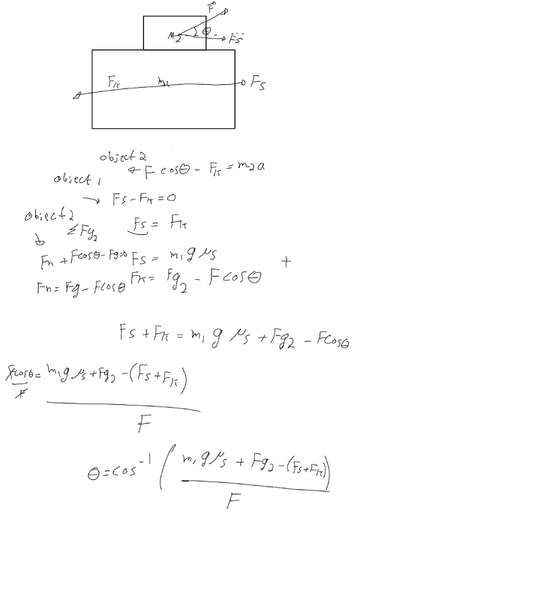 F
M2 θ Fs
Fk m1 Fs
object 2
F cosθ - Fk = m2a
object 1
→ Fs - Fk = 0
object 2
Σ Fg2
Fs = Fk
Fn + Fcosθ - Fg=0 Fs = m1 g μs +
Fn = Fg - Fcosθ Fk = Fg2 - F cosθ
Fs + Fk = m1 g μs + Fg2 - Fcosθ
Fcosθ = m1 g μs + Fg2 - (Fs + Fk)
F
F
θ = cos-1 ( m1 g μs + Fg2 - (Fs+Fk) )
F